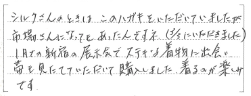 シルクさんのときは このハガキをいただいていましたが
市場さんになっても あったんですネ (3/5にいただきました)
1月の新宿の展示会で 大好きな着物に出会い
帯も見たてていただいて購入しました 着るのが楽しみ
です